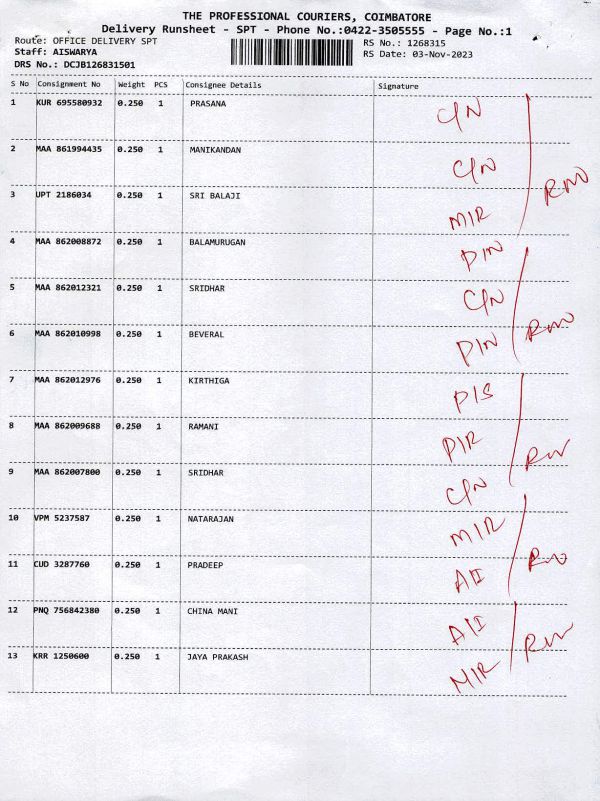 THE PROFESSIONAL COURIERS, COIMBATORE
Delivery Runsheet - SPT - Phone No.:0422-3505555 - Page No.:1
Route: OFFICE DELIVERY SPT RS No.: 1268315
Staff: AISWARYA RS Date: 03-Nov-2023
DRS No.: DCJB126831501
S No Consignment No Weight PCS Consignee Details Signature
1 KUR 695580932 0.250 1 PRASANA C/N
2 MAA 861994435 0.250 1 MANIKANDAN C/N
3 UPT 2186034 0.250 1 SRI BALAJI M/R
4 MAA 862008872 0.250 1 BALAMURUGAN P/N
5 MAA 862012321 0.250 1 SRIDHAR C/N
6 MAA 862010998 0.250 1 BEVERAL P/N
7 MAA 862012976 0.250 1 KIRTHIGA P/S
8 MAA 862009688 0.250 1 RAMANI P/R
9 MAA 862007800 0.250 1 SRIDHAR C/N
10 VPM 5237587 0.250 1 NATARAJAN M/R
11 CUD 3287760 0.250 1 PRADEEP
12 PNQ 756842380 0.250 1 CHINA MANI
13 KRR 1250600 0.250 1 JAYA PRAKASH